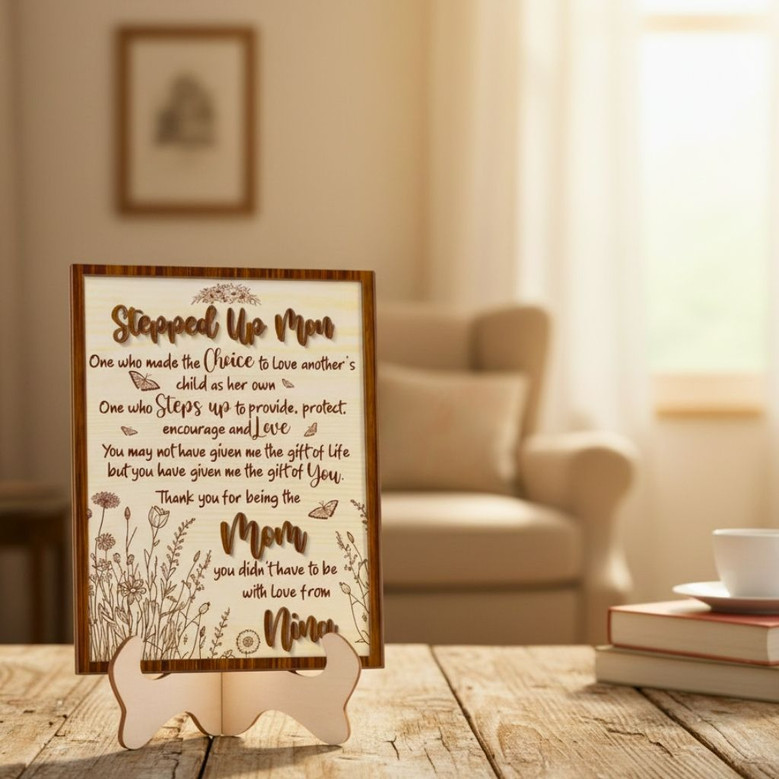 Stepped Up Mom
One who made the Choice to Love another's
child as her own
One who Steps up to provide, protect,
encourage and Love
You may not have given me the gift of life
but you have given me the gift of You.
Thank you for being the
Mom
you didn't have to be
with Love from
Nina